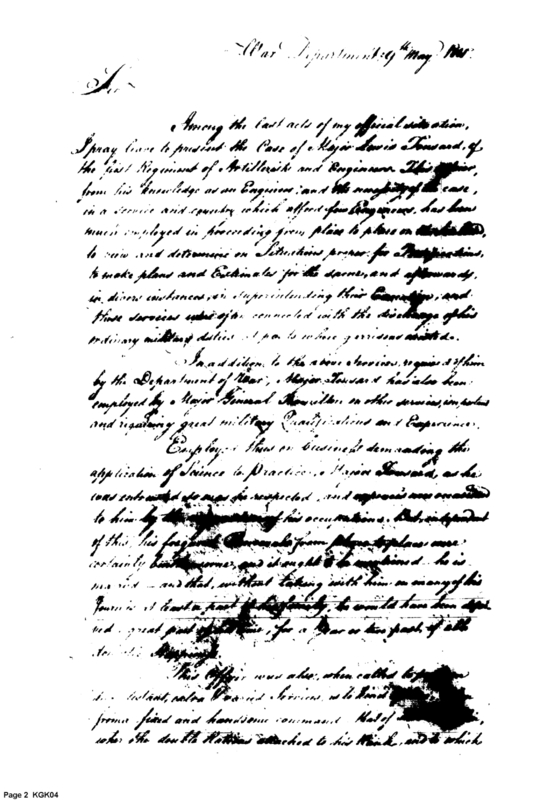 War Department 9th May 1801.
Sir
Among the last acts of my official situation,
I pray leave to present the Case of Major Lewis Tousard, of
the first Regiment of Artillerists and Engineers. This Officer,
from his knowledge as an Engineer, and the necessity of the case,
in a service and country which afford few Engineers, has been
much employed in proceeding from place to place on
to view and determine on Situations proper for Fortifications,
to make plans and Estimates for the same, and afterwards,
in divers instances, in superintending their Execution, and
these services were often connected with the discharge of his
ordinary military duties at posts where garrisons existed.
In addition to the above Services, required of him
by the Department of War, Major Tousard has also been
employed by Major General Hamilton on other services, important
and requiring great military Qualifications and Experience.
Employed thus on business demanding the
application of Science to Practice, Major Tousard, as he
was entrusted so was he respected, and expences were occasioned
to him by the of his occupations. But, independent
of this, his frequent removals from place to place were
certainly burthensome, and it ought to be mentioned he is
married and that, without taking with him on many of his
Journeys at least a part of his family, he would have been depri
ved great part of the time, for a Year or two past, of all
domestic Happiness.
This Officer was also, when called to perform
distant, extra Services, so
from a fixed and handsome command that of
where the double Rations attached to his Rank, and to which
Page 2 KGK04